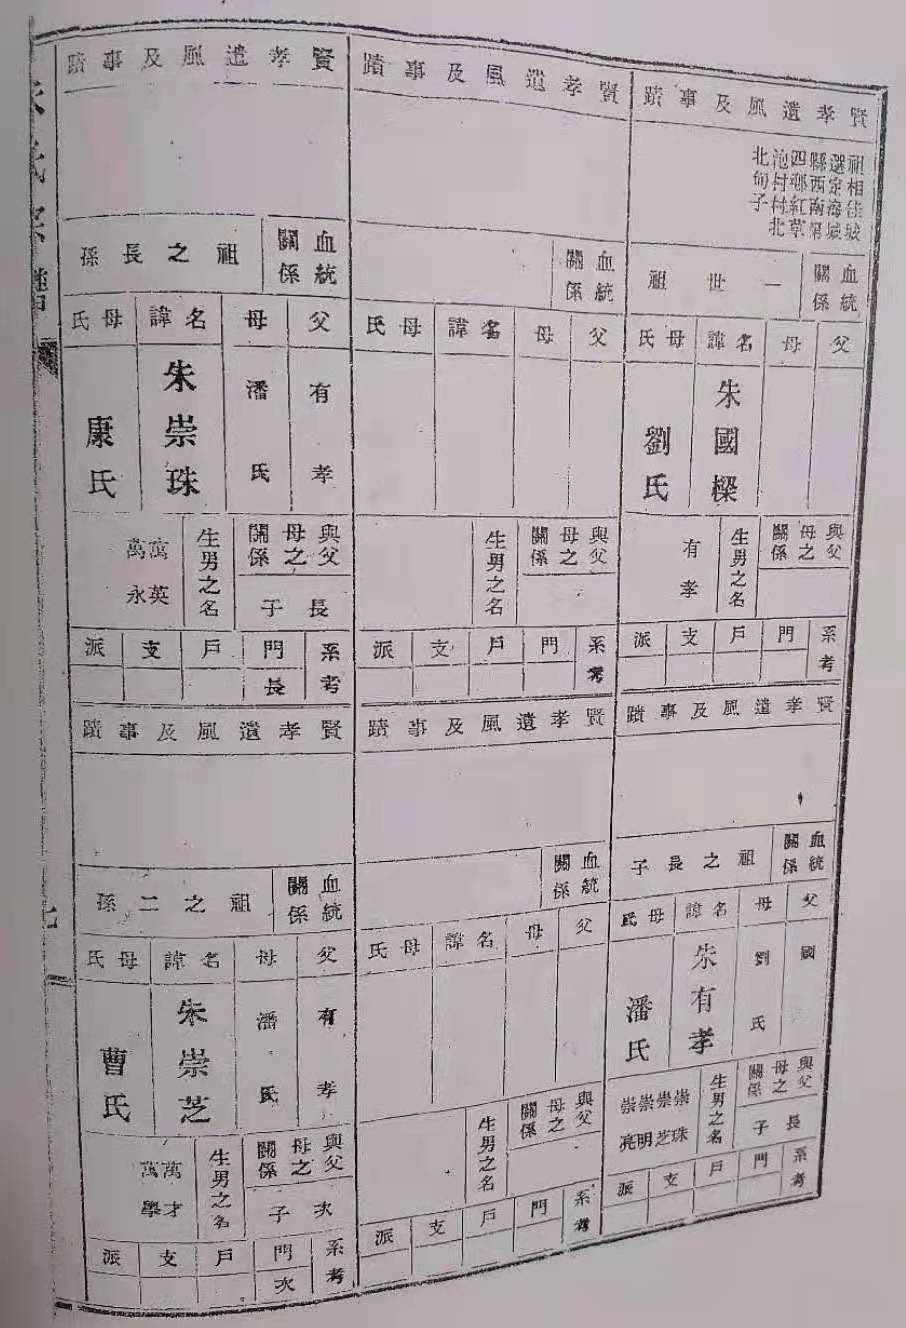 賢孝遺風及事蹟
祖相佳城
選定海城
縣西南第
四鄉紅草
泡村村北
北甸子
血統關係
一世祖
父
母
名諱
母氏
朱國樑
劉氏
與父母之關係
生男之名
有孝
系考
門
戶
支
派
賢孝遺風及事蹟
血統關係
祖之長子
父
母
名諱
母氏
國
劉氏
朱有孝
潘氏
與父母之關係
長子
生男之名
崇珠
崇芝
崇明
崇亮
系考
門
戶
支
派
賢孝遺風及事蹟
血統關係
父
母
名諱
母氏
與父母之關係
生男之名
系考
門
戶
支
派
賢孝遺風及事蹟
血統關係
父
母
名諱
母氏
與父母之關係
生男之名
系考
門
戶
支
派
賢孝遺風及事蹟
血統關係
祖之長孫
父
母
名諱
母氏
有孝
潘氏
朱崇珠
康氏
與父母之關係
長子
生男之名
萬英
萬永
系考
門
戶
支
派
長
賢孝遺風及事蹟
血統關係
祖之二孫
父
母
名諱
母氏
有孝
潘氏
朱崇芝
曹氏
與父母之關係
次子
生男之名
萬才
萬學
系考
門
戶
支
派
次